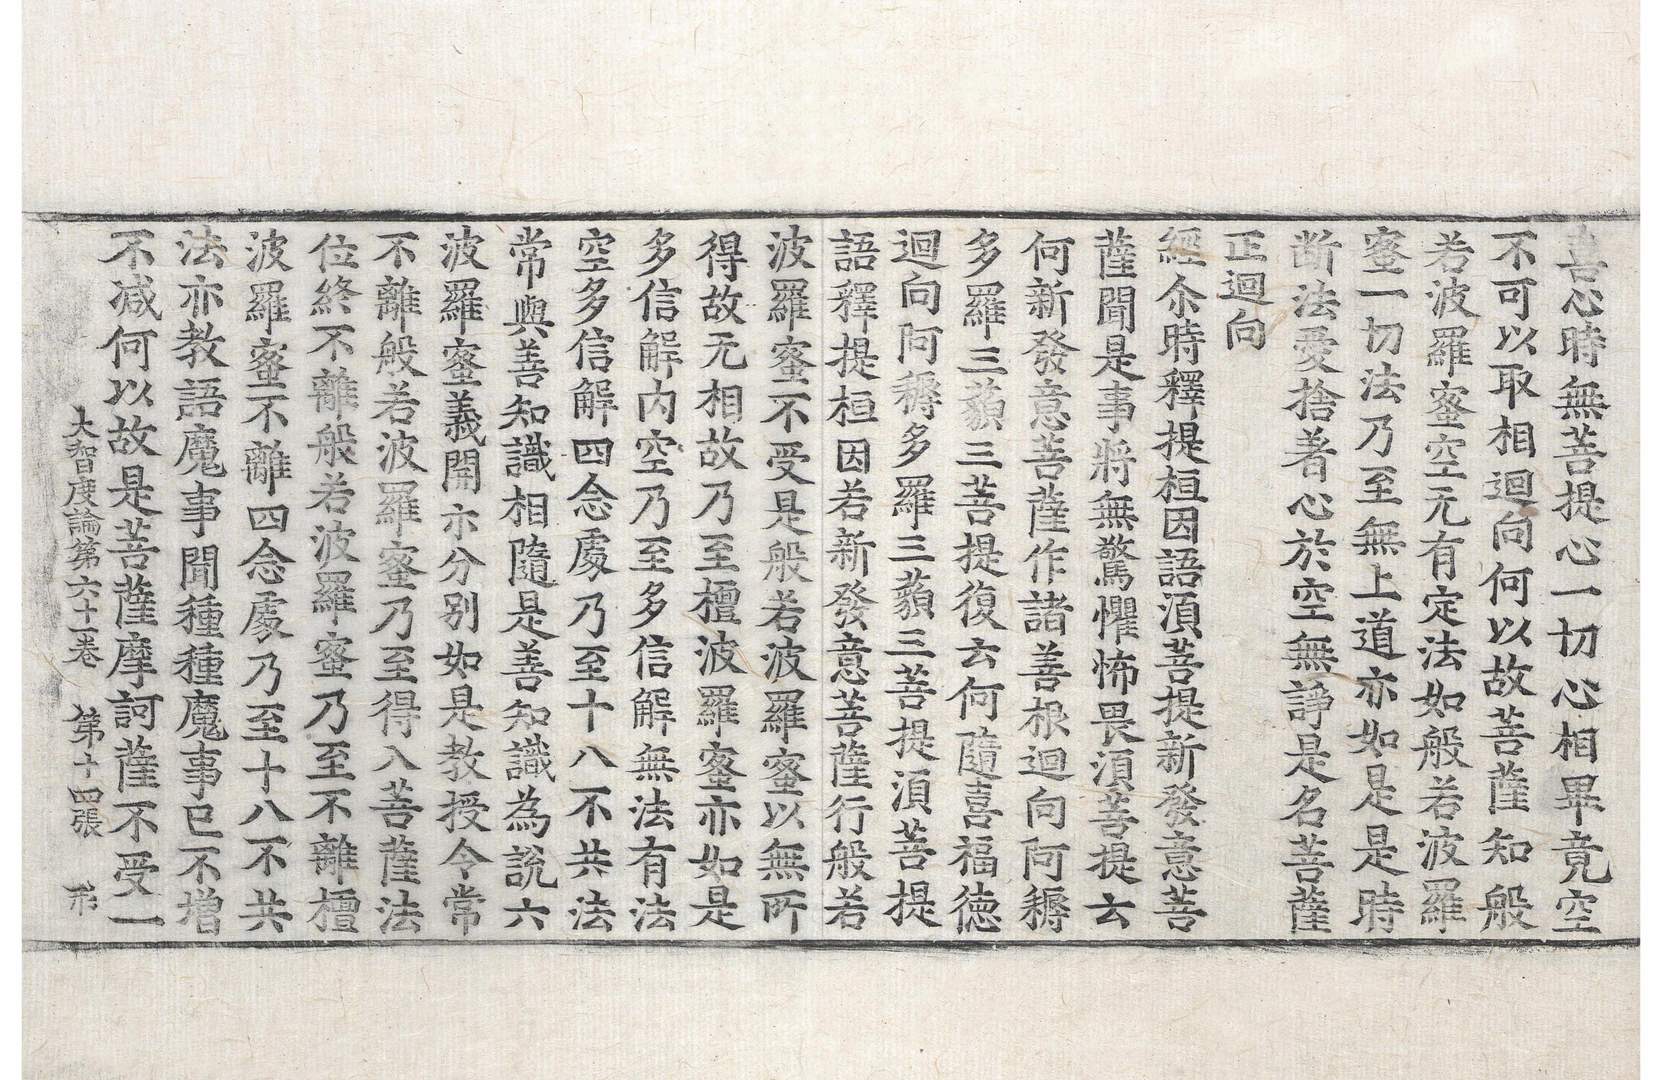 喜心時無菩提心一切心相畢竟空
不可以取相迴向何以故菩薩知般
若波羅蜜空无有定法如般若波羅
蜜一切法乃至無上道亦如是是時
断法愛捨著心於空無諍是名菩薩
正迴向
經尒時釋提桓因語湏菩提新發意菩
薩聞是事將無驚懼怖畏湏菩提云
何新發意菩薩作諸善根迴向阿耨
多羅三藐三菩提復云何隨喜福德
迴向阿耨多羅三藐三菩提湏菩提
語釋提桓因若新發意菩薩行般若
波羅蜜不受是般若波羅蜜以無所
得故无相故乃至檀波羅蜜亦如是
多信解内空乃至多信解無法有法
空多信解四念處乃至十八不共法
常與善知識相隨是善知識為說六
波羅蜜義開示分別如是教授令常
不離般若波羅蜜乃至得入菩薩法
位終不離般若波羅蜜乃至不離檀
波羅蜜不離四念處乃至十八不共
法亦教語魔事聞種種魔事已不增
不減何以故是菩薩摩訶薩不受一
大智度論第六十一卷 第十四張 形